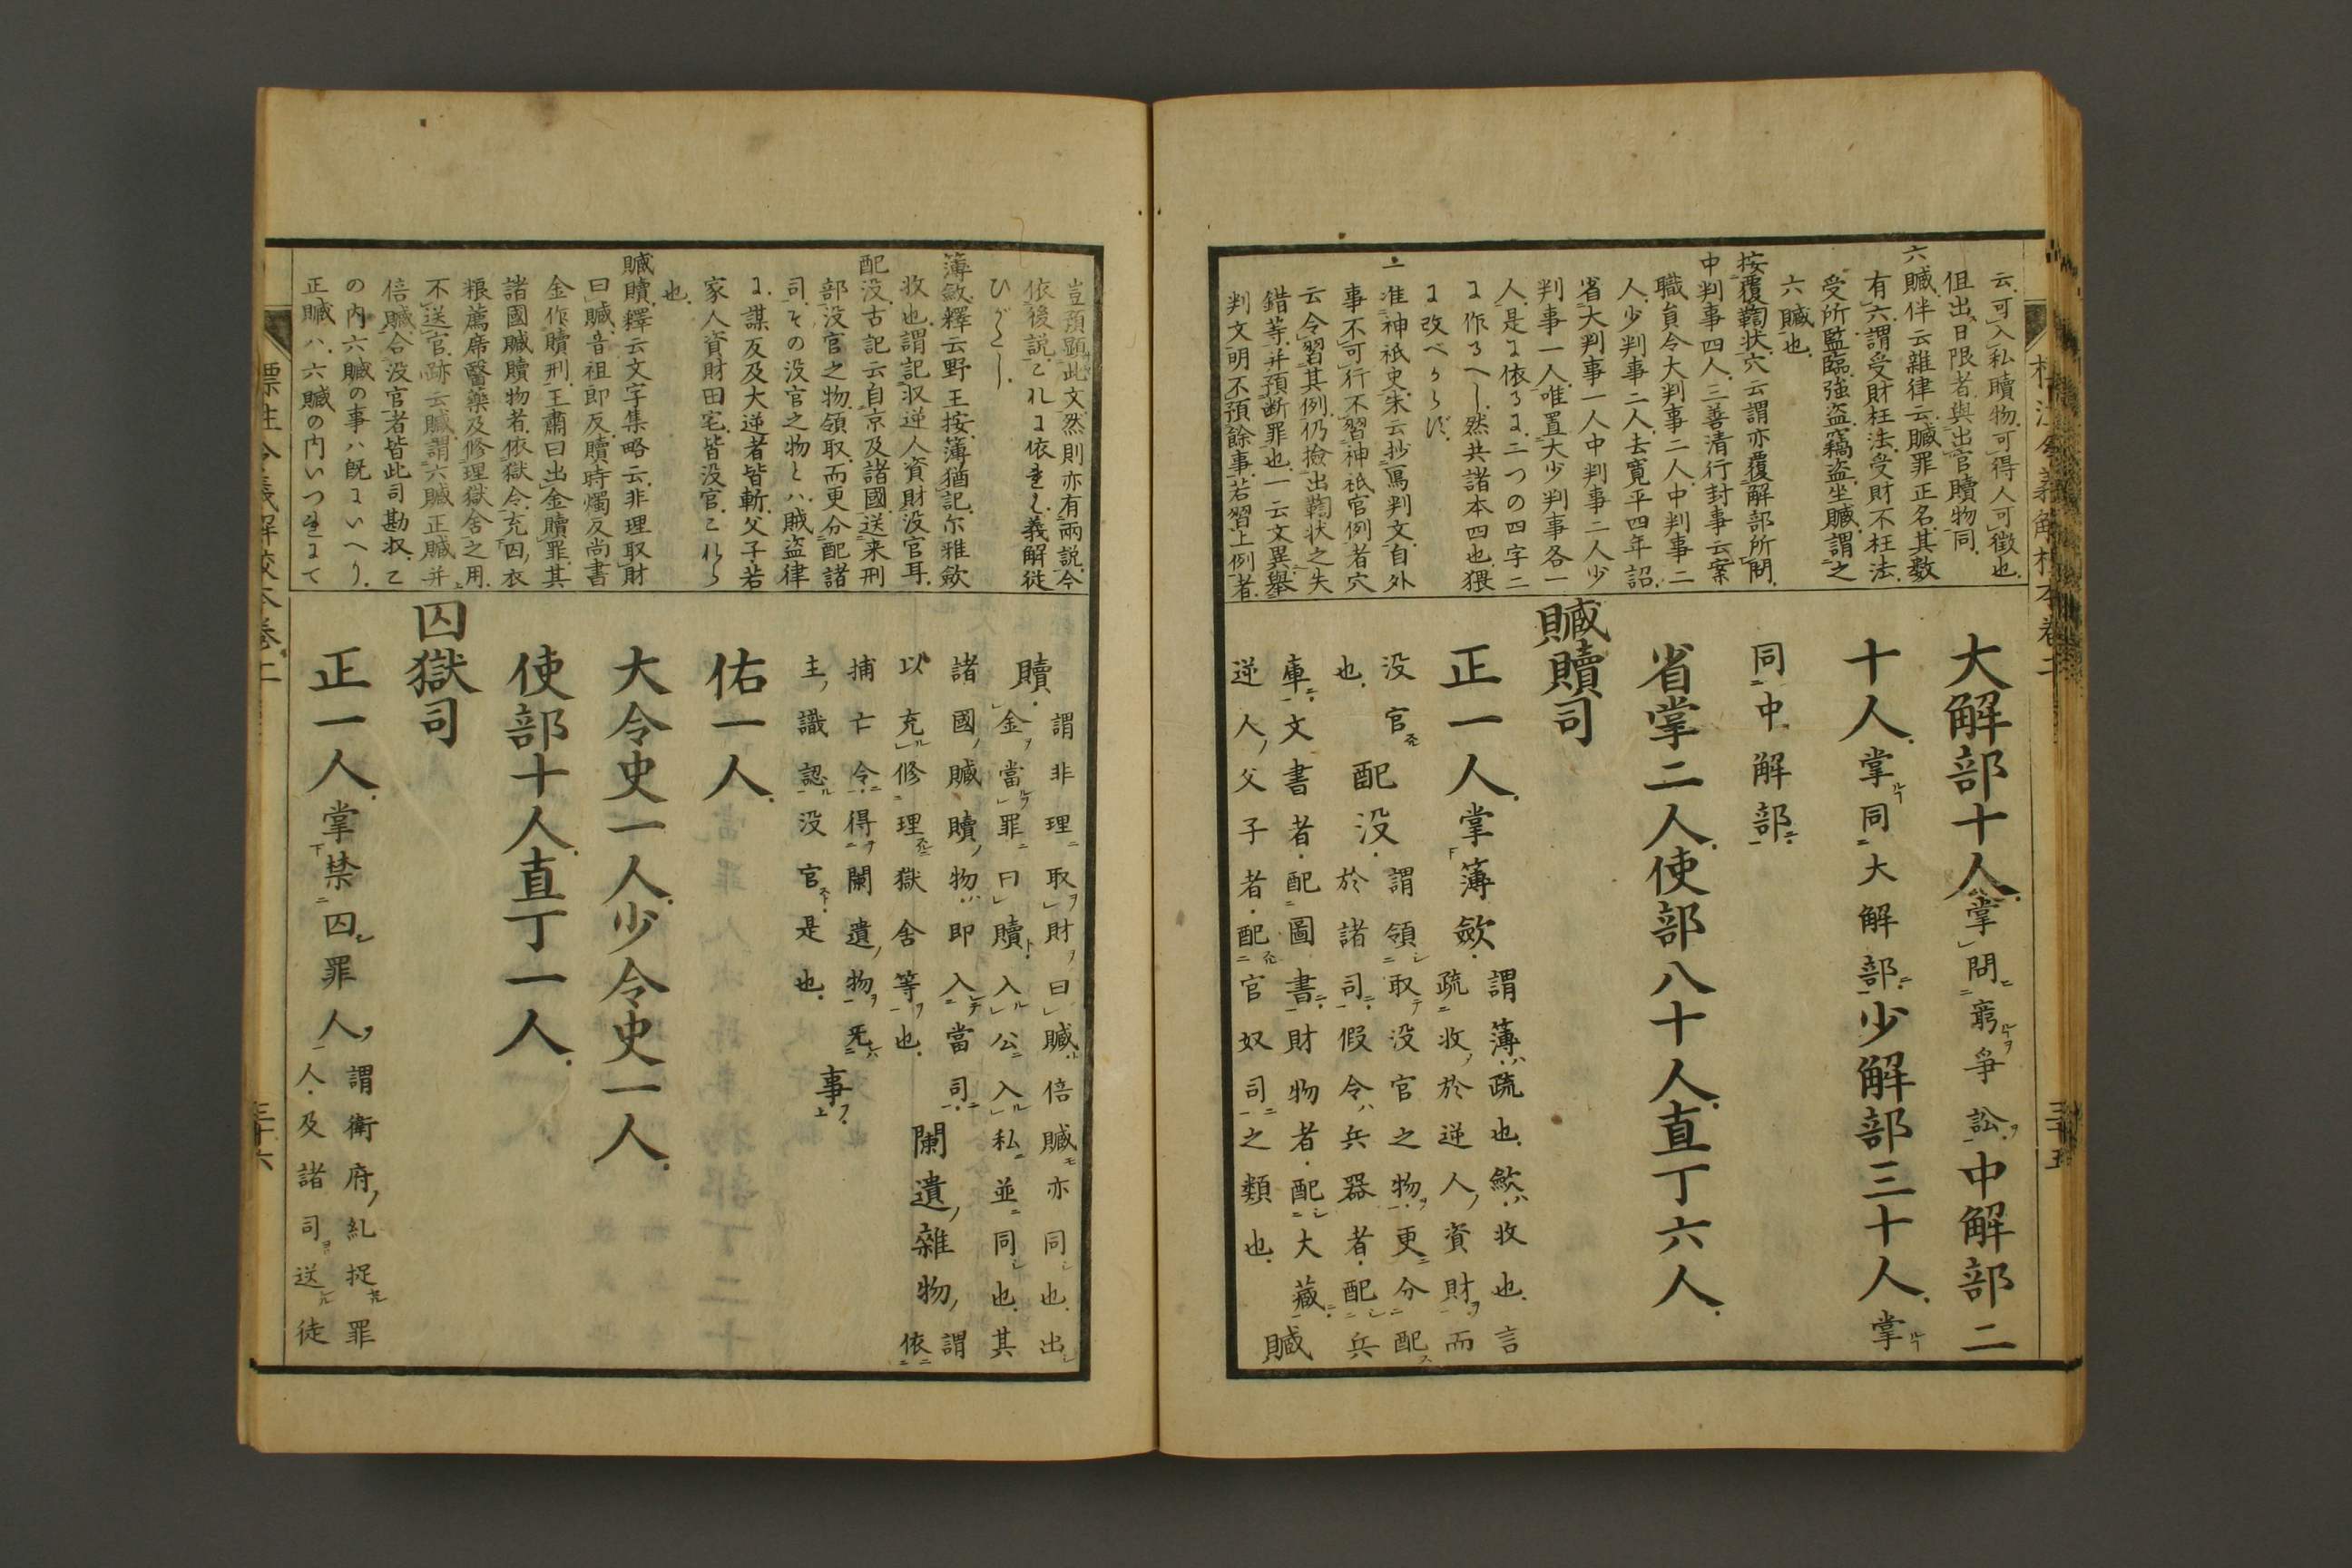 云可入私贖物可得人可徵也
但出日限者與出官贖物同
六贓伴云雜律云贓罪正名其數
有六謂受財枉法受財不枉法
受所監臨強盗竊盗坐贓謂之
六贓也
按覆鞫状穴云謂亦覆解部所問
中判事四人三善清行封事云案
職負令大判事二人中判事二
人少判事二人去寛平四年詔
省大判事一人中判事二人少
判事一人唯置大少判事各一
人是に依るに二つの四字二
に作るへし然共諸本四也猥
に改べからず
一准神祇史朱云抄冩判文自外
事不可行不習神祇官例者穴
云令習其例仍撿出鞫状之失
錯等并預断罪也一云文異擧
判文明不預餘事若習上例者
大解部十人掌問窮爭訟中解部二
十人掌同大解部少解部三十人掌
同中解部
省掌二人使部八十人直丁六人
贓贖司
正一人掌薄斂謂薄疏也斂收也言
疏收於逆人資財而
没官配没謂領取没官之物更分配
也於諸司假令兵器者配兵
庫文書者配圖書財物者配大藏贓
逆人父子者配官奴司之類也
三十五
豈預顕此文然則亦有兩説今
依後説これに依まく義解従
ひがくし
薄斂釋云野王按薄猶記尓雅斂
收也謂記収逆人資財没官耳
配没古記云自京及諸國送来刑
部没官之物領取而更分配諸
司その没官之物とハ賊盗律
に謀反及大逆者皆斬父子若
家人資財田宅皆没官これら
也
贓贖釋云文字集略云非理取財
曰贓音祖郎反贖時燭反尚書
金作贖刑王肅曰出金贖罪其
諸國贓贖物者依獄令充囚衣
粮薦席醫藥及修理獄舍之用
不送官跡云贓謂六贓正贓并
倍贓合没官者皆此司勘収こ
の内六贓の事ハ既にいへり
正贓ハ六贓の内いつれにて
贖謂非理取財曰贓倍贓亦同也出
金當罪曰贖入公入私並同也其
諸國贓贖物即入當司闌遺雜物謂
以充修理獄舍等也依
捕亡令得闌遺物无事
主識認没官是也
佑一人
大令史一人少令史一人
使部十人直丁一人
囚獄司
正一人掌禁囚罪人謂衛府糺捉罪
人及諸司送徒
標注令義解校本巻二
三十六